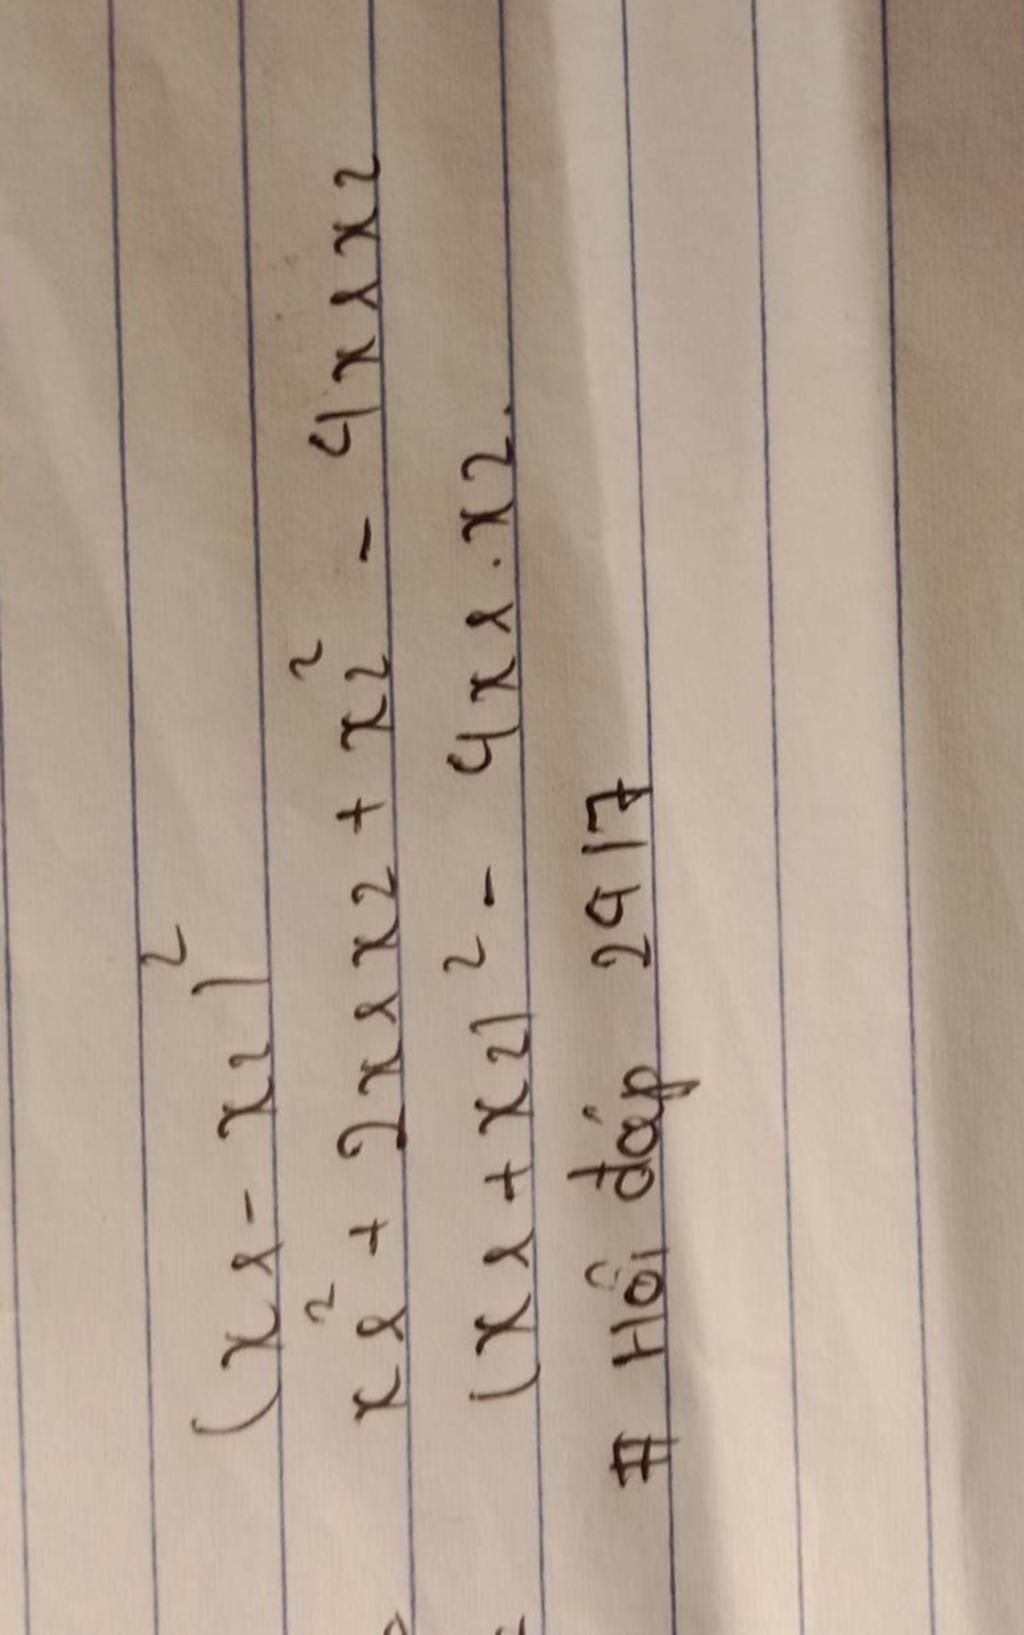 (x1 - x2)²
x1² + 2x1x2 + x2² - 4x1x2
(x1 + x2)² - 4x1.x2.
# Hỏi đáp 2417